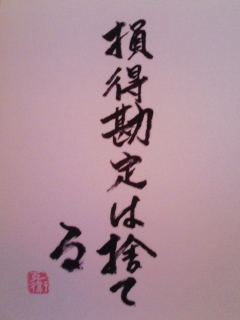 損得勘定は捨て
る